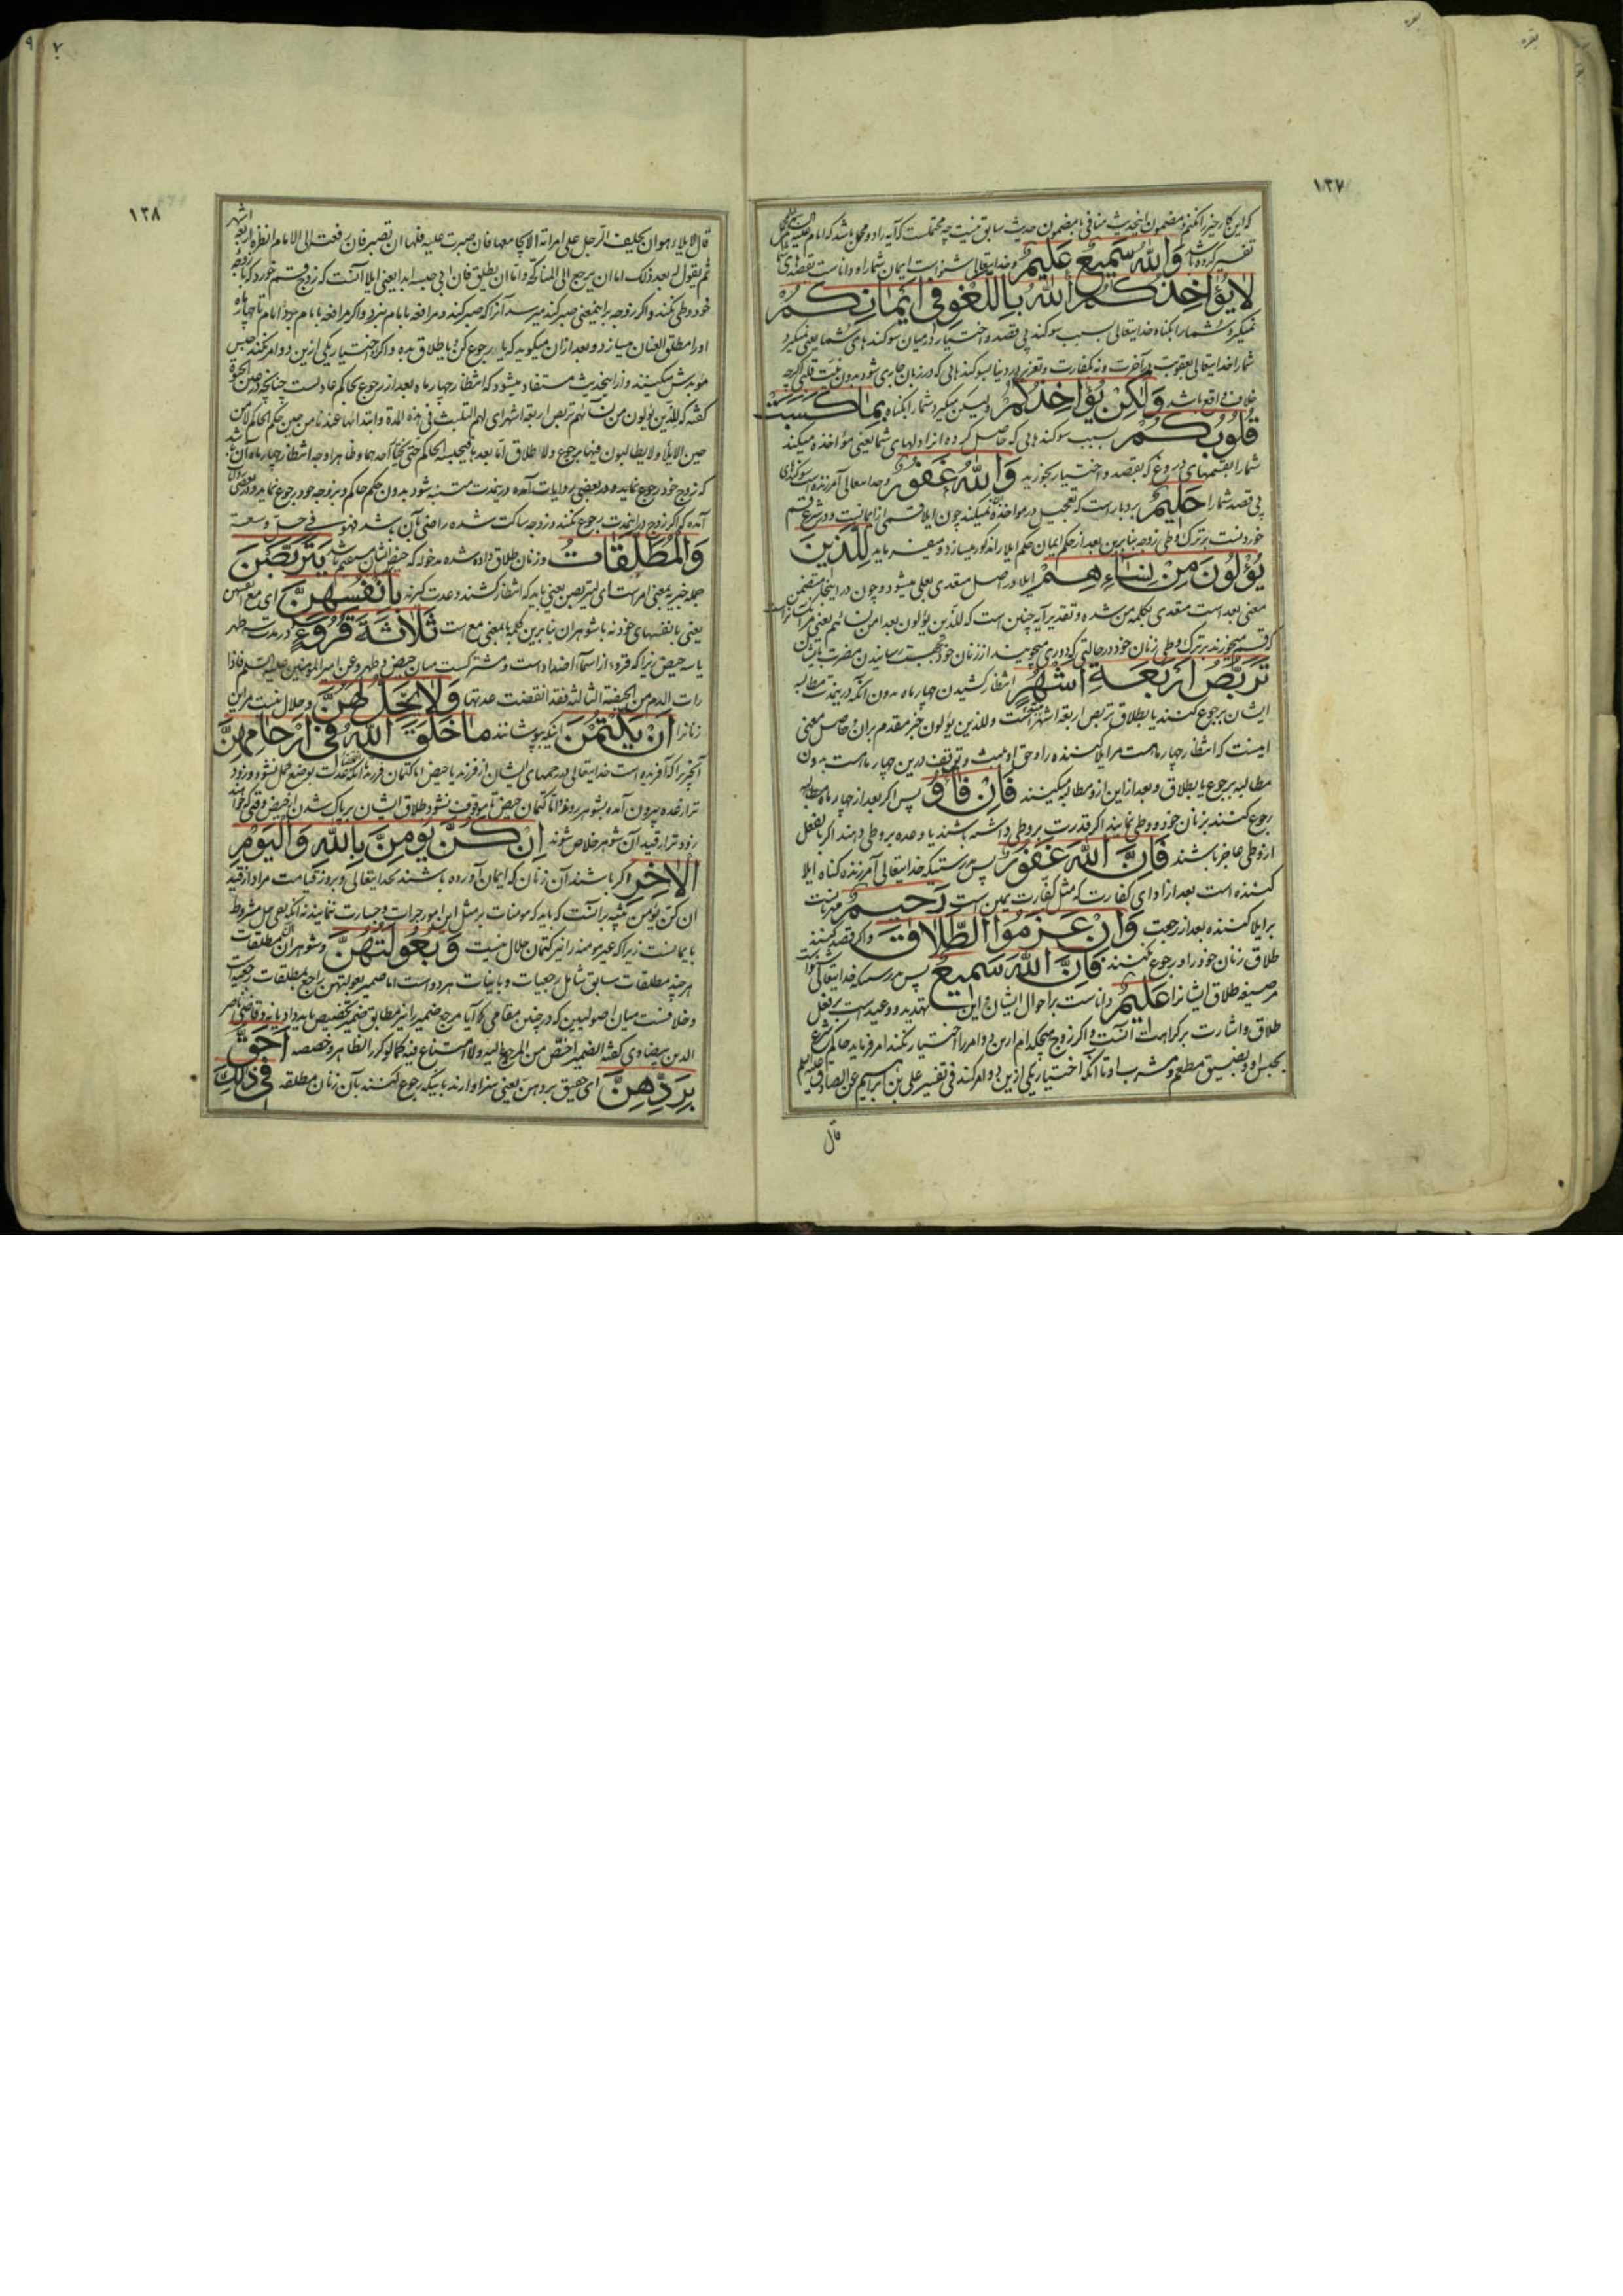 ۱۲۷
که این کار خیر را نکنم مضمون این حدیث منافی با مضمون حدیث سابق نیست چه محتملست که آیه را دو محمل باشد که امام علیه السلام
تفسیر کرده باشد وَاللّٰهُ سَمِیعٌ عَلِیمٌ و خدایتعالی شنواست ایمان شما را و داناست بقصدهای شما
لَا یُؤَاخِذُکُمُ اللّٰهُ بِاللَّغْوِ فِی أَیْمَانِکُمْ
نمیگیرد شما را بگناه خدایتعالی بسبب سوگند بی قصد و اختیار در میان سوگندهای شما یعنی نمیگیرد
شما را خدایتعالی بعقوبت در آخرت و نه بکفارت و تعزیر در دنیا بسوگندهایی که در زبان جاری شود بدون نیت قلبی اگرچه
خلاف واقع باشد وَلٰکِنْ یُؤَاخِذُکُمْ ولیکن میگیرد شما را بگناه بِمَا کَسَبَتْ
قُلُوبُکُمْ بسبب سوگندهایی که حاصل کرده آنرا دلهای شما یعنی مؤاخذه میکند
شما را بقسمهای دروغ که بقصد و اختیار بخورید وَاللّٰهُ غَفُورٌ و خدایتعالی آمرزنده است سوگندهای
بی قصد شما را حَلِیمٌ بردبار است که تعجیل در مواخذه نمیکند چون ایلا قسمی از ایمانست و در شرع قسم
خوردنست بر ترک وطی زوجه بنابرین بعد از حکم ایمان حکم ایلا را مذکور میسازد و میفرماید لِلَّذِینَ
یُؤْلُونَ مِنْ نِسَاءِهِمْ ایلا در اصل متعدی بعلی میشود و چون در اینجا متضمن
معنی بعد است متعدی بکلمه من شده و تقدیر آیه چنین است که للذین یؤلون بعدا من نسائهم یعنی مر آنکسانراست
که قسم میخورند بر ترک وطی زنان خود در حالتی که دوری میجویند از زنان خود بجهت رسانیدن مضرت بایشان
تَرَبُّصُ أَرْبَعَةِ أَشْهُرٍ انتظار کشیدن چهار ماه بدون آنکه در ینمدت مطالبه
ایشان برجوع کنند یا بطلاق تربص اربعة اشهر مبتداست و للذین یؤلون خبر مقدم بران و حاصل معنی
اینست که انتظار چهار ماهست مر ایلا کننده را و حق اوست تلبث و توقف درین چهار ماهست بدون
مطالبه برجوع یا بطلاق و بعد ازین ازو مطالبه میکنند فَإِنْ فَاؤُ پس اگر بعد از چهار ماه مطالبه
رجوع کنند بزنان خود و وطی نمایند اگر قدرت بر وطی داشته باشند یا وعده بر وطی دهند اگر بالفعل
از وطی عاجز باشند فَإِنَّ اللّٰهَ غَفُورٌ پس بدرستیکه خدایتعالی آمرزنده گناه ایلا
کننده است بعد از ادای کفارت که مثل کفارت یمین است رَحِیمٌ مهربانست
بر ایلا کننده بعد از رجعت وَإِنْ عَزَمُوا الطَّلَاقَ و اگر قصد کنند
طلاق زنان خود را و رجوع نکنند فَإِنَّ اللّٰهَ سَمِیعٌ پس بدرستیکه خدایتعالی شنواست
مر صیغه طلاق ایشانرا عَلِیمٌ داناست بر احوال ایشان و این تهدید و وعید است بر فعل
طلاق و اشارت بر کراهت آنست و اگر زوج هیچکدام ازین دو امر را اختیار نکند امر فرماید حاکم شرع
بحبس او و بضییق مطعم و مشرب او تا آنکه اختیار یکی ازین دو امر کند فی تفسیر علی بن ابراهیم عن الصادق علیه السلام
قال
۱۲۸
قال الایلاء هو ان یحلف الرجل علی امراته الا یجامعها فان صبرت علیه فلها ان تصبر فان رفعته الی الامام انظره اربعة اشهر
ثم یقول له بعد ذلک اما ان یرجع الی المناکحة و اما ان یطلق فان ابی حبسه ابدا یعنی ایلا آنست که زوج قسم خورد که با زوجه
خود وطی نکند و اگر زوجه برا ینمعنی صبر کند میرسد آنرا که صبر کند و مرافعه با امام نبرد و اگر مرافعه با امام برد امام تا چهار ماه
او را مطلق العنان میسازد و بعد ازان میگوید که یا رجوع کن و یا طلاق بده و اگر اختیار یکی ازین دو امر نکند حبس
موبدش میکنند و ازین حدیث مستفاد میشود که انتظار چهار ماه بعد از رجوع بحاکم عادلست چنانچه در عین الحیوة
گفته که للذین یؤلون من نسائهم تربص اربعة اشهر ای لهم التلبث فی هذه المدة و ابتدائها عندنا من حین حکم الحاکم لا من
حین الایلاء ولا یطالبون فیها برجوع ولا طلاق اما بعدها فیحبسه الحاکم حتی یختار احدهما و ظاهرا وجه انتظار چهار ماه آن باشد
که زوج خود رجوع نماید و در بعضی روایات آمده در ینمدت متنبه شود بدون حکم حاکم و بزوجه خود رجوع نماید و در بعضی روایات
آمده که اگر زوج در اینمدت رجوع نکند و زوجه ساکت شده راضی بآن باشد فهو فی حل و سعة
وَالْمُطَلَّقَاتُ و زنان طلاق داده شده مدخوله که حیض ایشان مستقیم باشد یَتَرَبَّصْنَ
جمله خبریه بمعنی امر است ای لیتربصن یعنی باید که انتظار کشند و عدت گیرند بِأَنْفُسِهِنَّ ای مع انفسهن
یعنی با نفسهای خود نه با شوهران بنابرین کلمه با بمعنی مع است ثَلَاثَةَ قُرُوءٍ در مدت سه طهر
یا سه حیض زیرا که قروء از اسماء اضداد است و مشترکست میان حیض و طهر و عن امیر المؤمنین علیه السلم فاذا
رات الدم من الحیضة الثالثة فقد انقضت عدتها وَلَا یَحِلُّ لَهُنَّ و حلال نیست مر این
زنانرا أَنْ یَکْتُمْنَ اینکه بپوشانند مَا خَلَقَ اللّٰهُ فِی أَرْحَامِهِنَّ
آنچیزیرا که آفریده است خدایتعالی در رحمهای ایشان از فرزند یا حیض اما کتمان فرزند تا آنکه عدت بوضع حمل نشود و زود
تر از عده بیرون آمده بشوهر روند و اما کتمان حیض تا موقوف نشود طلاق ایشان بر پاک شدن از حیض وقتی که خواهند
زودتر از قید آن شوهر خلاص شوند إِنْ کُنَّ یُؤْمِنَّ بِاللّٰهِ وَالْیَوْمِ
الْآخِرِ اگر باشند آن زنان که ایمان آورده باشند بخدایتعالی و بروز قیامت مراد از قید
ان کن یؤمن تنبیه برانست که باید که مومنات بر مثل این امور جرات و جسارت ننمایند نه آنکه نفی حل مشروط
بایمانست زیرا که غیر مومنه را نیز کتمان حلال نیست وَبُعُولَتُهُنَّ و شوهران آن مطلقات
هر چند مطلقات سابق شامل رجعیات و باینات هر دو است اما ضمیر بعولتهن راجع بمطلقات رجعیات
و خلافست میان اصولیین که در چنین مقامی که آیا مرجع ضمیر را نیز مطابق ضمیر تخصیص باید داد یا نه و قاضی ناصر
الدین بیضاوی گفته الضمیر اخص من المرجوع الیه ولا امتناع فیه کما لو کرر الظاهر و خصصه أَحَقُّ
بِرَدِّهِنَّ ای حقیق بردهن یعنی سزاوارند باینکه رجوع کنند بآن زنان مطلقه فِی ذٰلِکَ